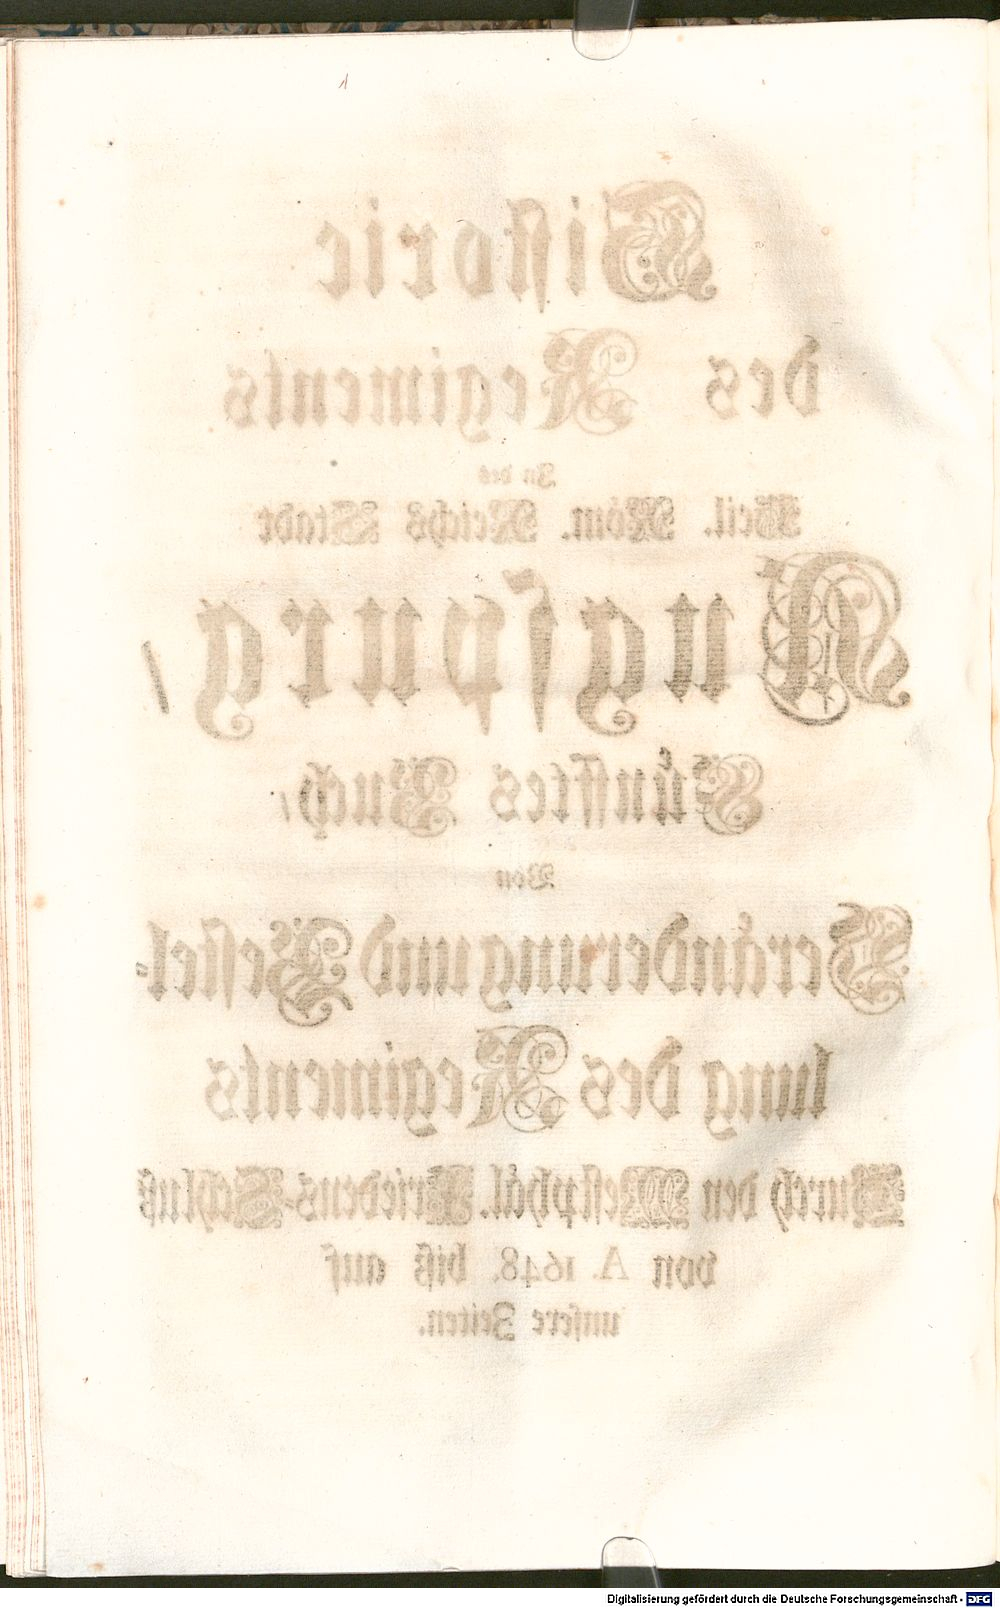 Historie
des Regiments
In des
Heil. Röm. Reichs Stadt
Augspurg/
Fünfftes Buch/
Von
Veränderung und Bestel-
lung des Regiments
Durch den Westphäl. Friedens-Schluß
von A. 1648. biß auf
unsere Zeiten.
Digitalisierung gefördert durch die Deutsche Forschungsgemeinschaft - DFG